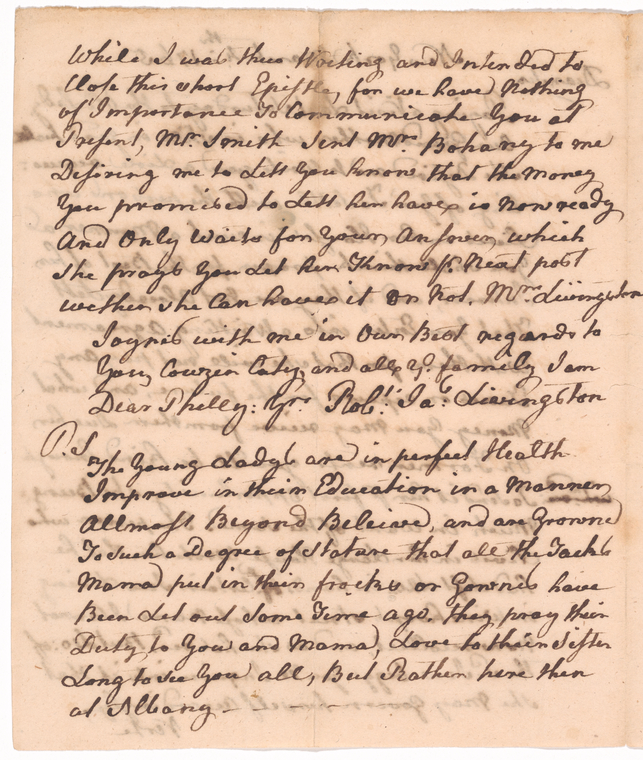 While I was thus Writing and Intended to
Close this short Epistle, for we have Nothing
of Importance To Communicate You at
Present, Mr. Smith Sent Mrs. Bohany to me
Desiring me to Lett You know that the Money
You promised to Lett her have, is Now ready
And Only Waits for Your Answer, which
She prays You Let her Know pr. Next post
wether she Can have it or Not. Mrs. Livingston
Joyns with me in Our Best regards to
You, Couzin Caty, and all ye. family I am
Dear Philly: Yrs. Robt. Jas. Livingston
P.S
The Young Ladys are in perfect Health
Improve in their Education in a Manner
Allmost Beyond Beleive, and are Growne
To Such a Degree of Stature that all the Tacks
Mama put in their frocks or Gownes have
Been Let out Some Time ago. they pray their
Duty to You and Mama, Love to their Sister
Long to see You all, But Rather here then
at Albany -